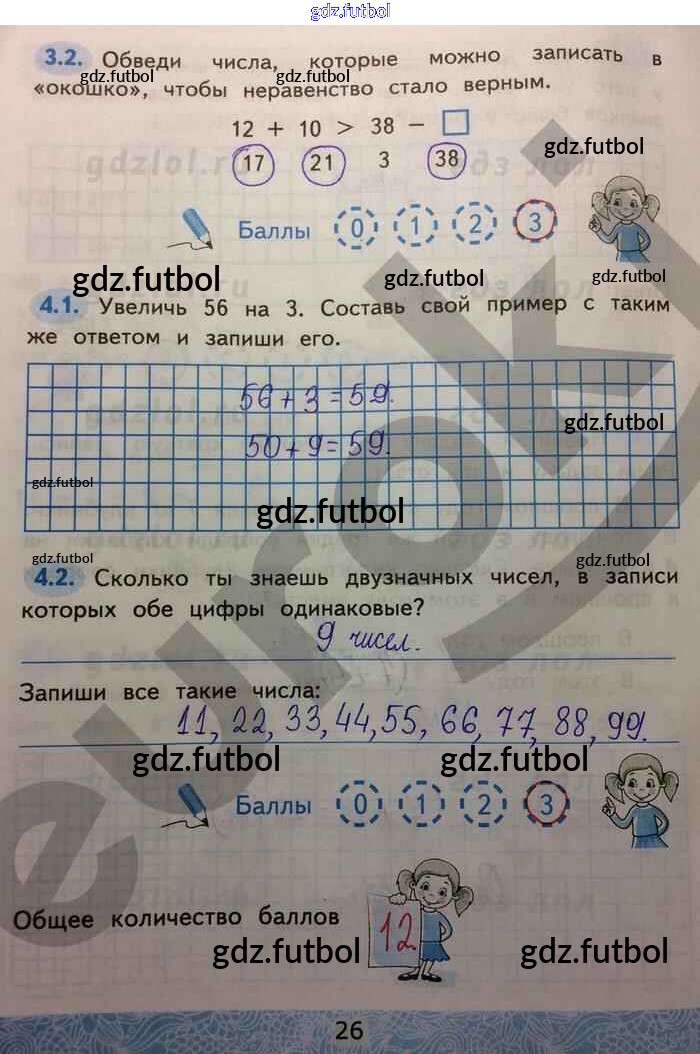 gdz.futbol
3.2. Обведи числа, которые можно записать в
gdz.futbol gdz.futbol
«окошко», чтобы неравенство стало верным.
12 + 10 > 38 −
gdz.futbol
17 21 3 38
Баллы 0 1 2 3
gdz.futbol gdz.futbol gdz.futbol
4.1. Увеличь 56 на 3. Составь свой пример с таким
же ответом и запиши его.
56+3=59.
gdz.futbol
50+9=59.
gdz.futbol
gdz.futbol
gdz.futbol gdz.futbol
4.2. Сколько ты знаешь двузначных чисел, в записи
которых обе цифры одинаковые?
9 чисел.
Запиши все такие числа:
11, 22, 33, 44, 55, 66, 77, 88, 99.
gdz.futbol gdz.futbol
Баллы 0 1 2 3
Общее количество баллов 12
gdz.futbol gdz.futbol
26
euroki